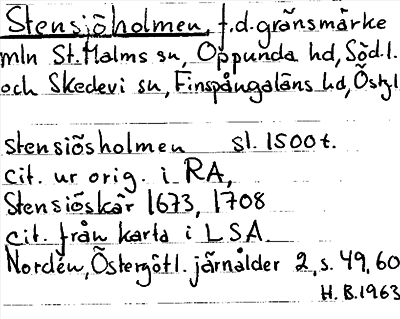 Stensjöholmen, f.d. gränsmärke
mln St. Malms sn, Oppunda hd, Södl.
och Skedevi sn, Finspångaläns hd, Östgl
Stensiösholmen sl. 1500 t.
cit. ur orig. i RA,
Stensiöskär 1673, 1708
cit. från karta i LSA
Nordén, Östergötl. järnålder 2, s. 49, 60
H.B. 1963